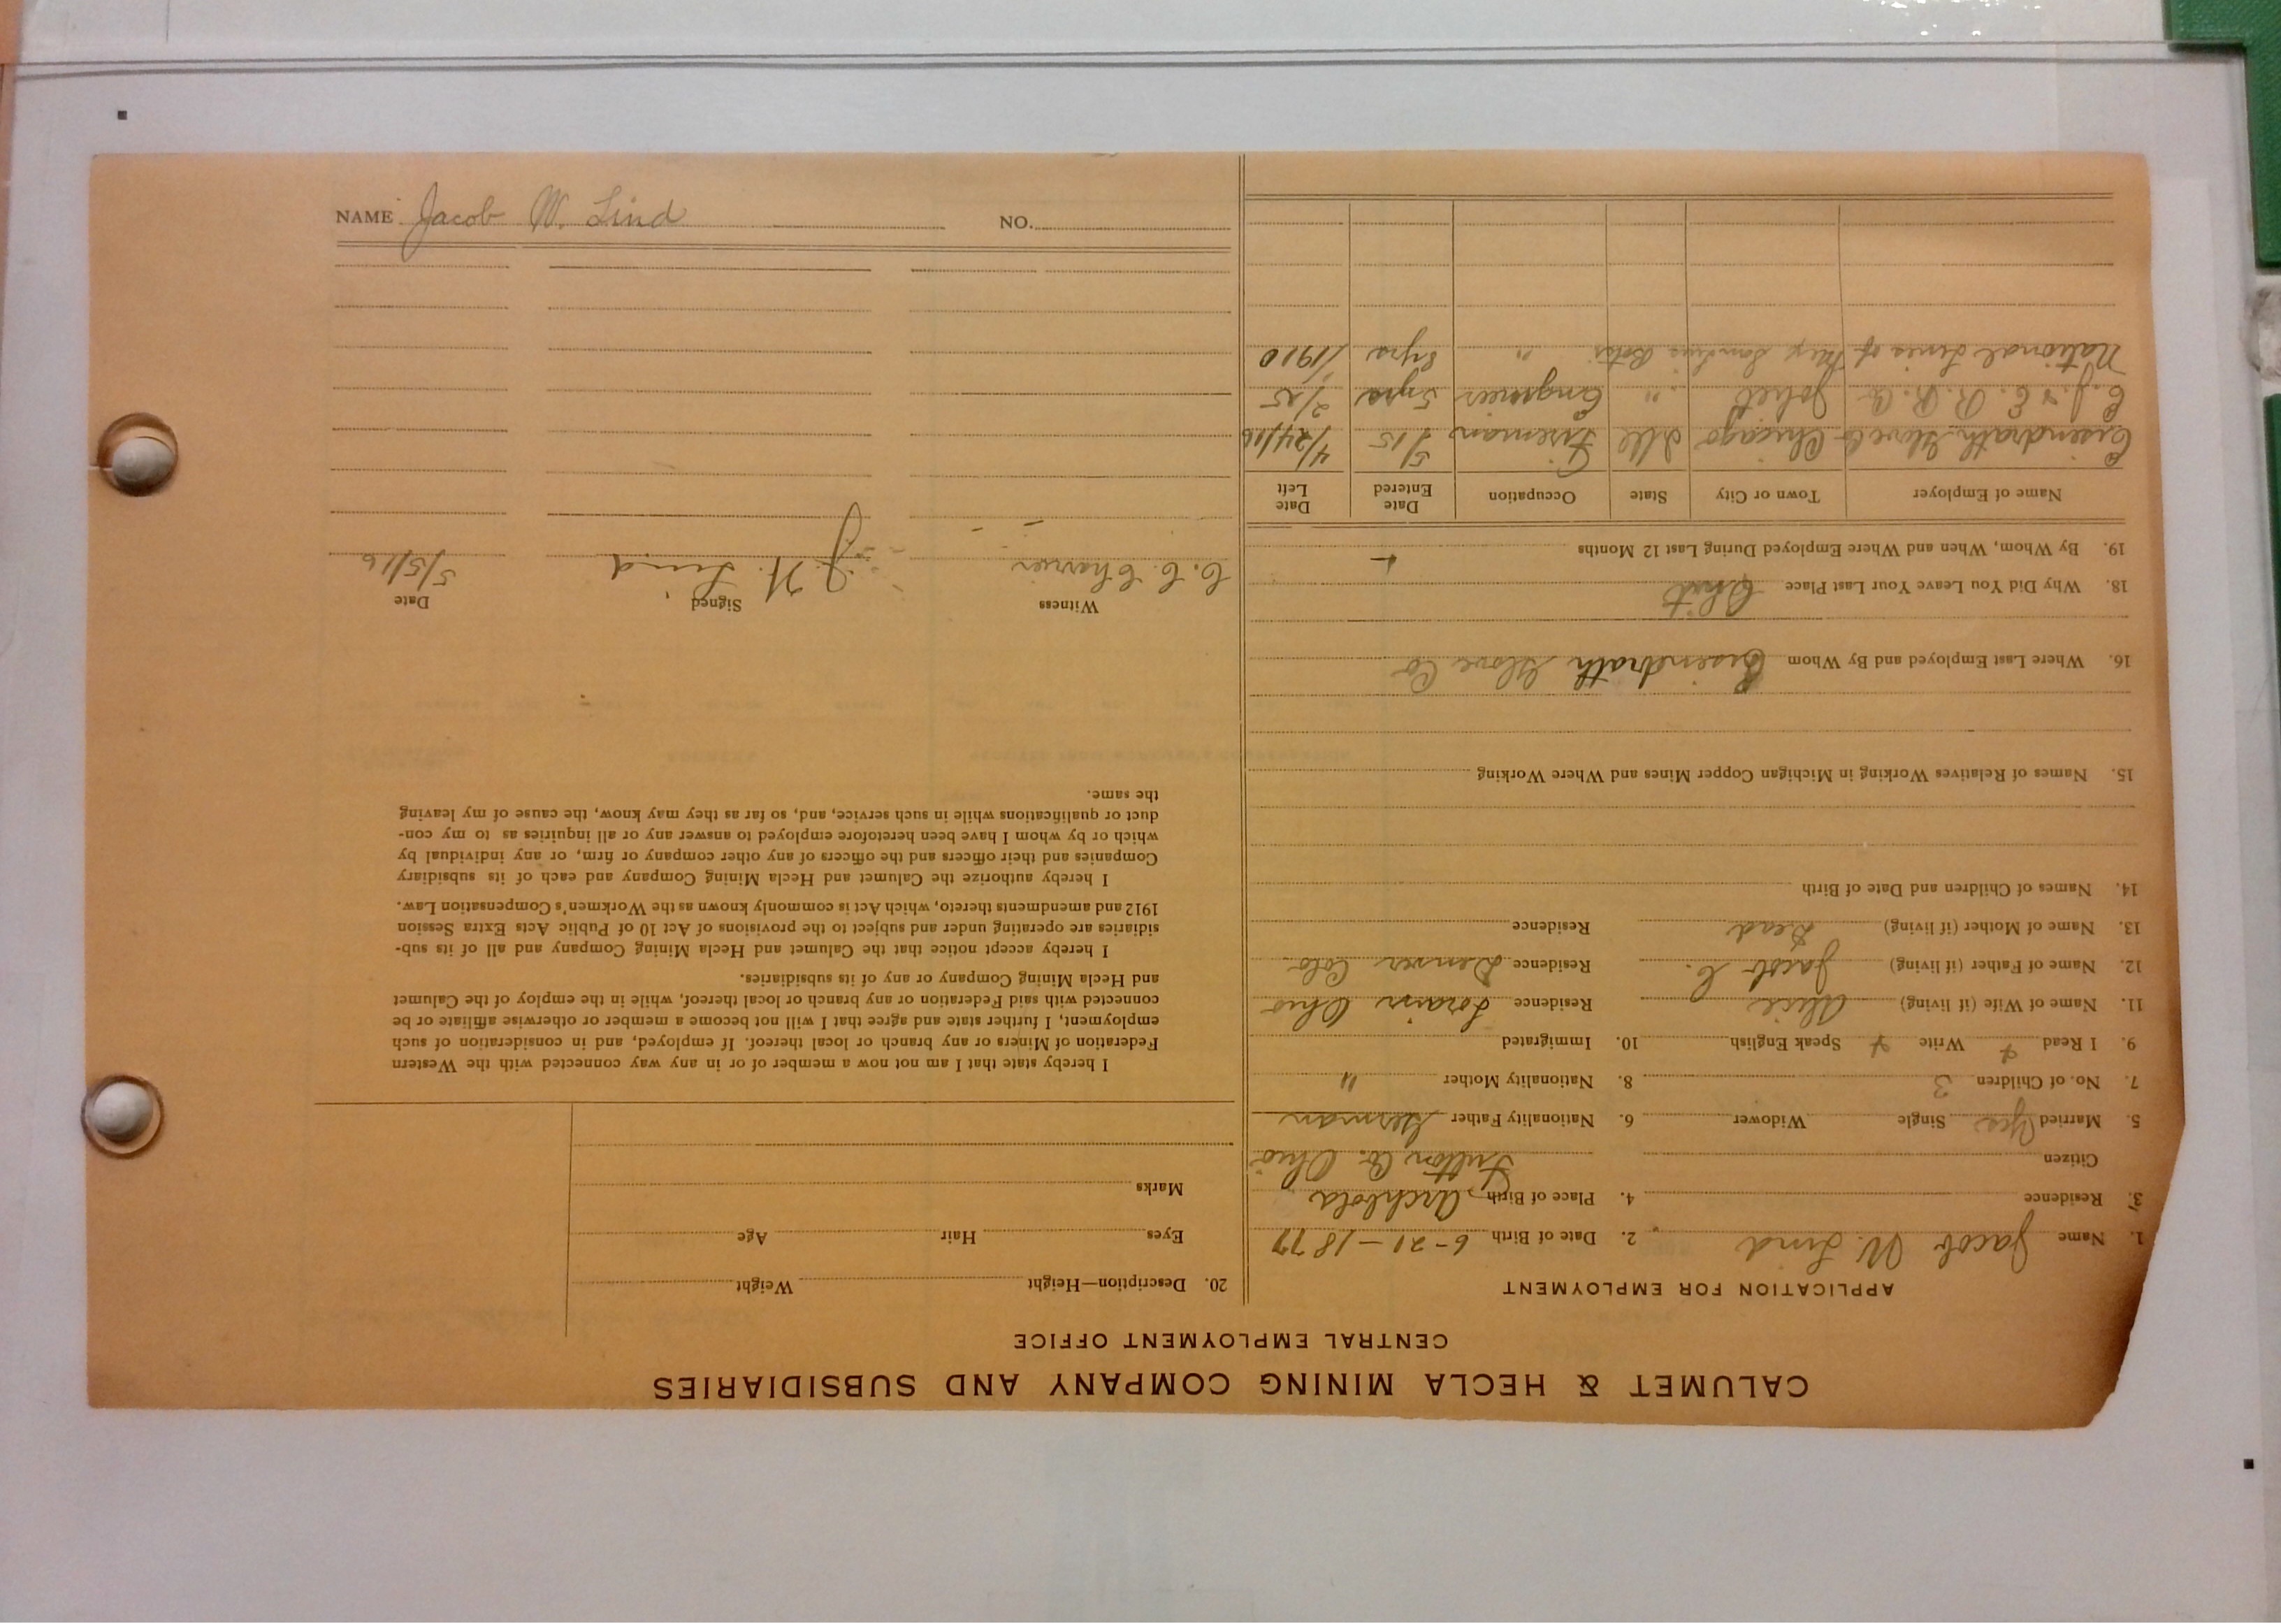 CALUMET & HECLA MINING COMPANY AND SUBSIDIARIES
CENTRAL EMPLOYMENT OFFICE
APPLICATION FOR EMPLOYMENT
1. Name Jacob W. Lind 2. Date of Birth 6-21-1877
3. Residence 4. Place of Birth Archbold
Citizen Fulton Co. Ohio
5. Married Yes Single Widower 6. Nationality Father German
7. No. of Children 3 8. Nationality Mother "
9. I Read + Write + Speak English 10. Immigrated
11. Name of Wife (if living) Alice Residence Lorain Ohio
12. Name of Father (if living) Jacob C. Residence Denver Colo
13. Name of Mother (if living) Dead Residence
14. Names of Children and Date of Birth
15. Names of Relatives Working in Michigan Copper Mines and Where Working
16. Where Last Employed and By Whom Eisendrath Glove Co
18. Why Did You Leave Your Last Place Quit
19. By Whom, When and Where Employed During Last 12 Months
Name of Employer Town or City State Occupation Date Entered Date Left
Eisendrath Glove Co Chicago Ill Fireman 5/15 4/24/16
E. J. & E. R. R. Co Joliet " Engineer 5yrs 2/25
National Lines of Mex " 1910
20. Description—Height Weight
Eyes Hair Age
Marks
I hereby state that I am not now a member of or in any way connected with the Western
Federation of Miners or any branch or local thereof. If employed, and in consideration of such
employment, I further state and agree that I will not become a member or otherwise affiliate or be
connected with said Federation or any branch or local thereof, while in the employ of the Calumet
and Hecla Mining Company or any of its subsidiaries.
I hereby accept notice that the Calumet and Hecla Mining Company and all of its sub-
sidiaries are operating under and subject to the provisions of Act 10 of Public Acts Extra Session
1912 and amendments thereto, which Act is commonly known as the Workmen's Compensation Law.
I hereby authorize the Calumet and Hecla Mining Company and each of its subsidiary
Companies and their officers and the officers of any other company or firm, or any individual by
which or by whom I have been heretofore employed to answer any or all inquiries as to my con-
duct or qualifications while in such service, and, so far as they may know, the cause of my leaving
the same.
Witness Signed Date
C. C. Charrier J. W. Lind 5/5/16
NAME Jacob W. Lind NO.